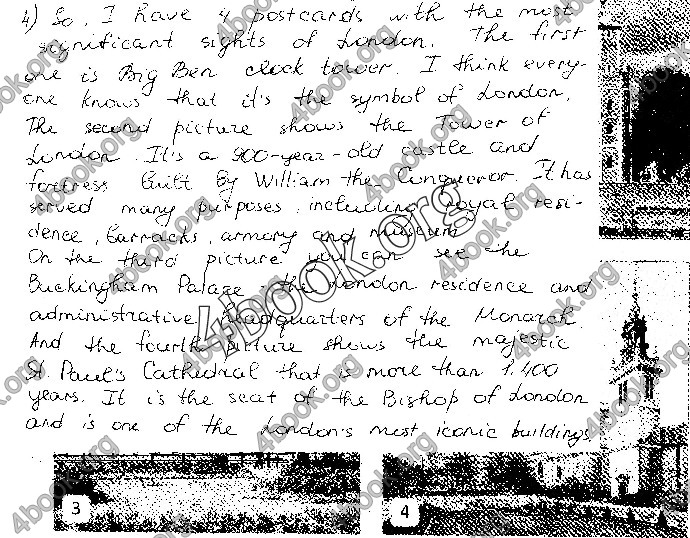 4) So, I have 4 postcards with the most
significant sights of London. The first
one is Big Ben clock tower. I think every-
one knows that it's the symbol of London.
The second picture shows the Tower of
London. It's a 900-year-old castle and
fortress built by William the Conqueror. It has
served many purposes, including royal resi-
dence, barracks, armory and museum.
On the third picture you can see the
Buckingham Palace - the London residence and
administrative headquarters of the Monarch.
And the fourth picture shows the majestic
St. Paul's Cathedral that is more than 1,400
years. It is the seat of the Bishop of London
and is one of the London's most iconic buildings.
3
4
4book.org